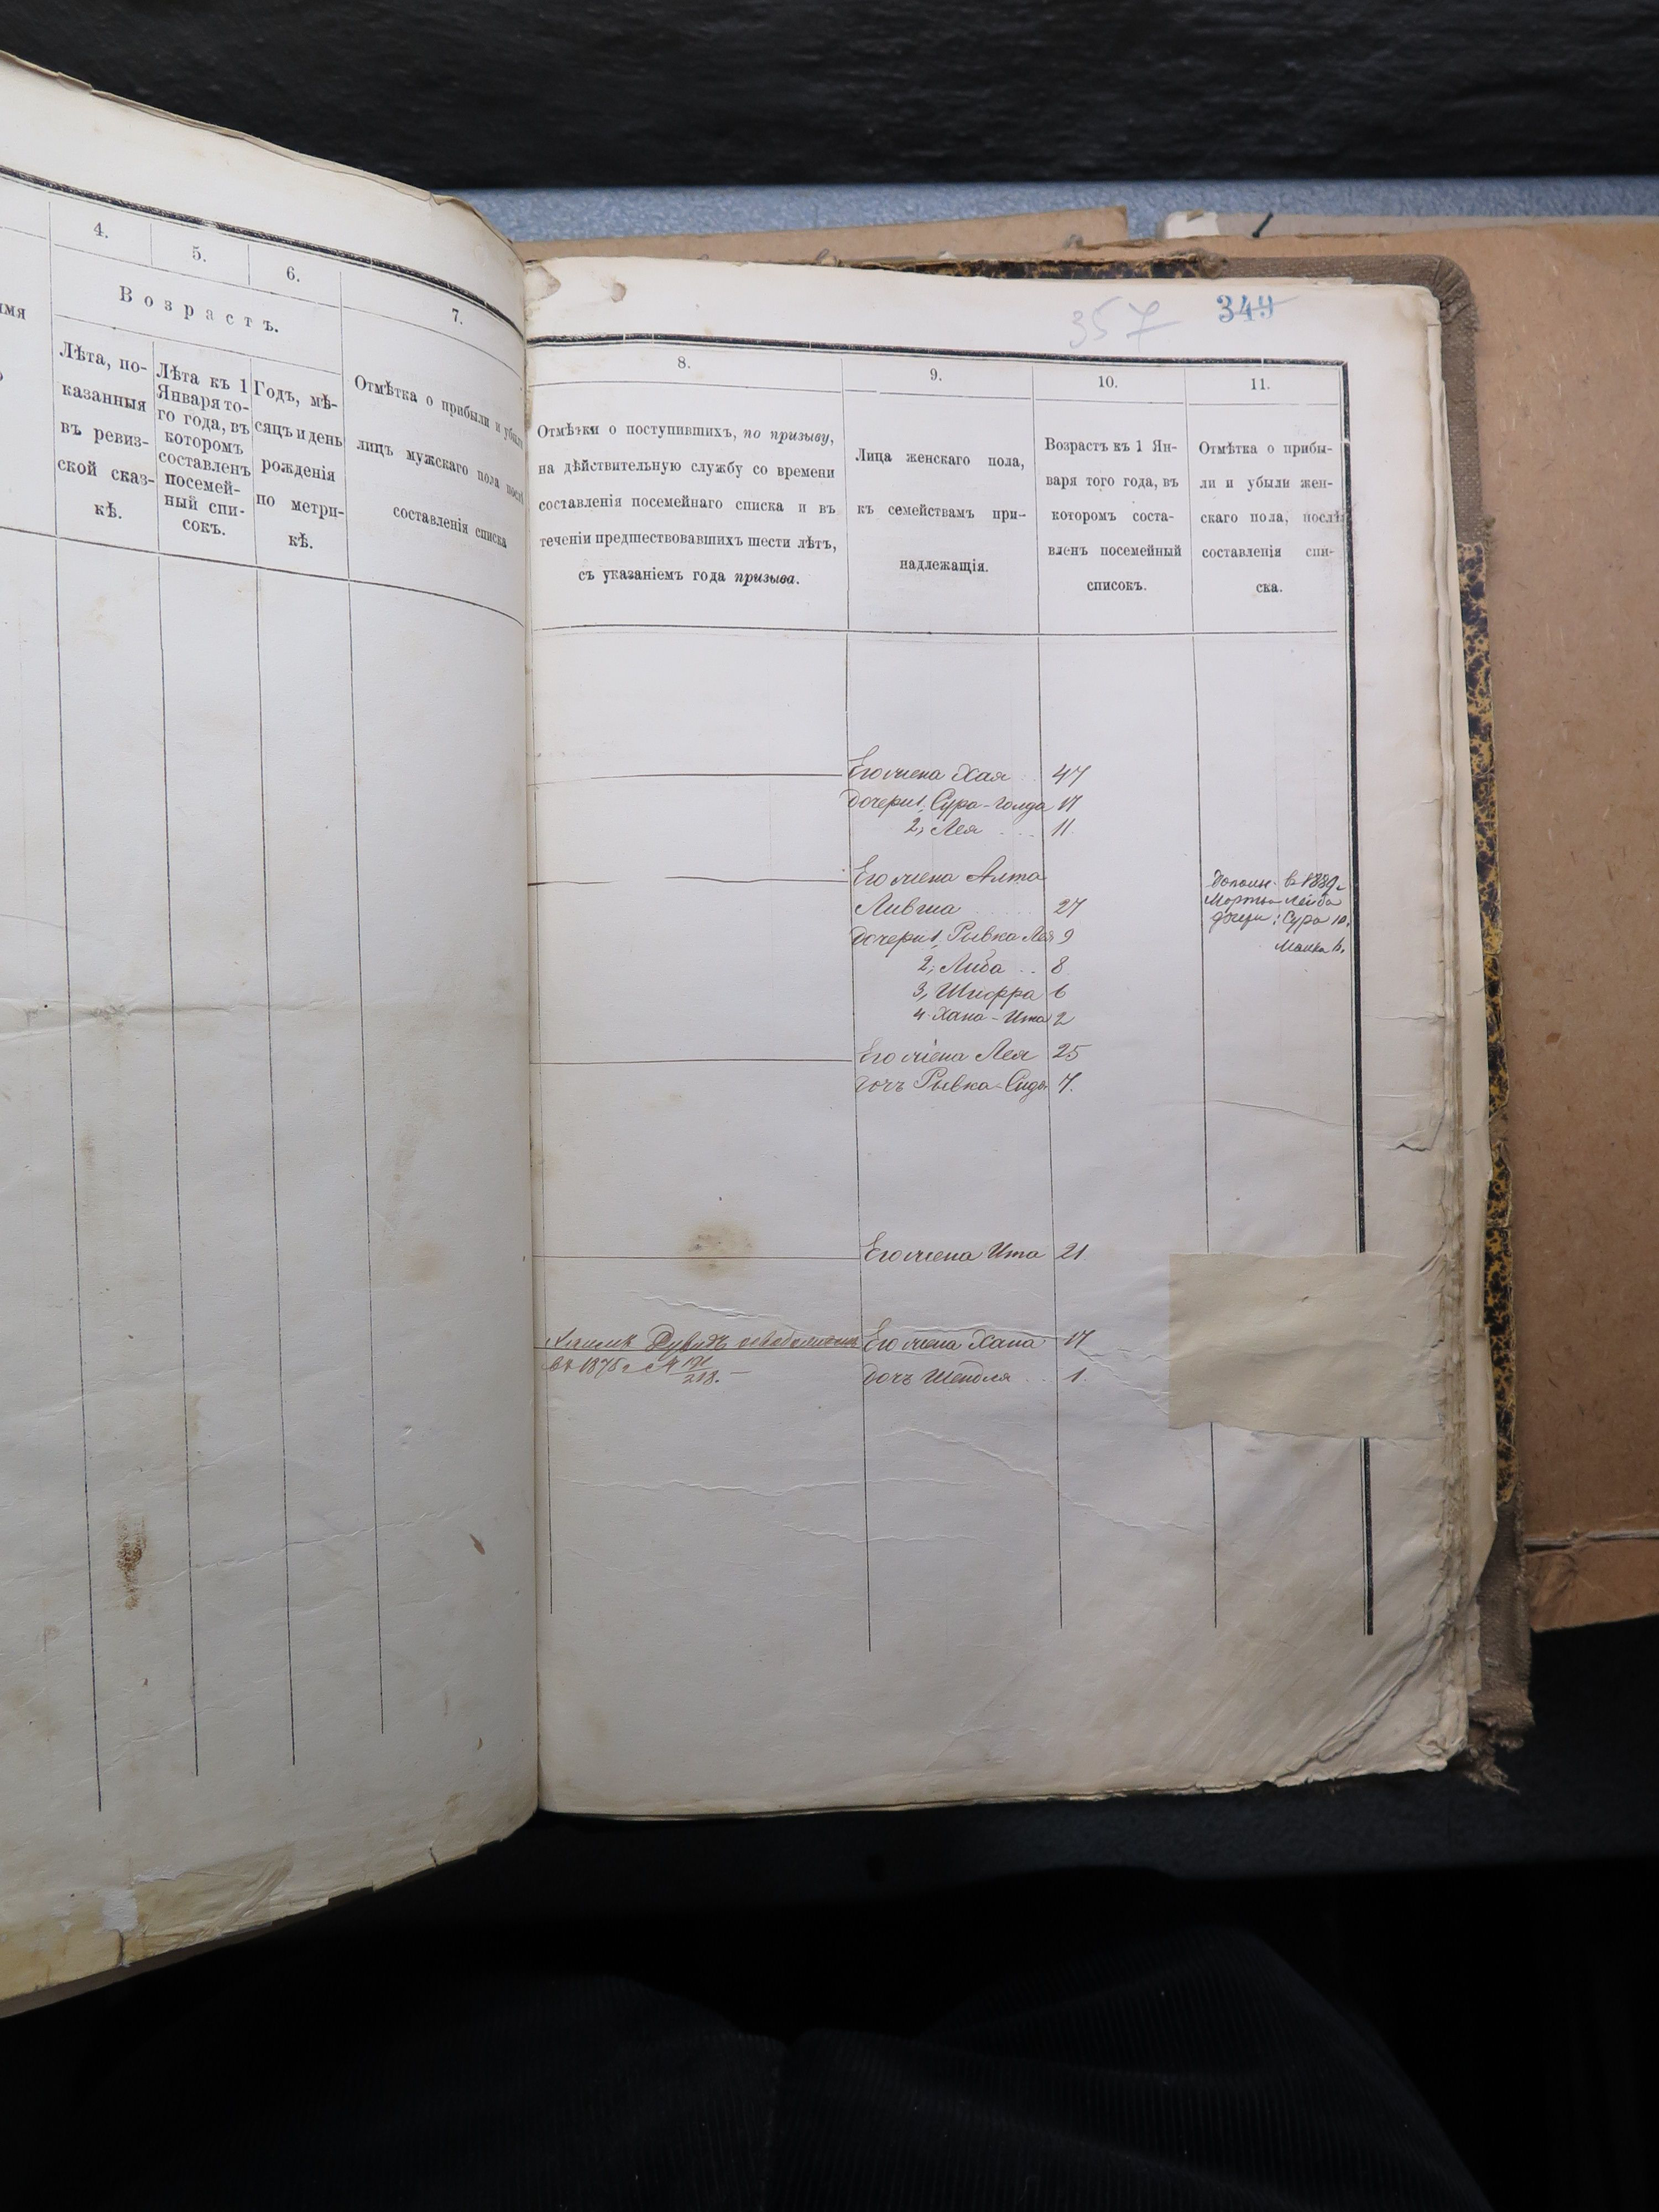 4.
5.
6.
7.
Возрастъ.
Лѣта, по-
казанныя
въ ревиз-
ской сказ-
кѣ.
Лѣта къ 1
Января то-
го года, въ
которомъ
составленъ
посемей-
ный спи-
сокъ.
Годъ, мѣ-
сяцъ и день
рожденія
по метри-
кѣ.
Отмѣтка о прибыли и
лицъ мужскаго пола
составленія списка
357 349
8.
9.
10.
11.
Отмѣтки о поступившихъ, по призыву,
на дѣйствительную службу со времени
составленія посемейнаго списка и въ
теченіи предшествовавшихъ шести лѣтъ,
съ указаніемъ года призыва.
Лица женскаго пола,
къ семействамъ при-
надлежащія.
Возрастъ къ 1 Ян-
варя того года, въ
которомъ соста-
вленъ посемейный
списокъ.
Отмѣтка о прибы-
ли и убыли жен-
скаго пола, послѣ
составленія спи-
ска.
Его жена Хая 47
дочери 1, Сура-Голда 17
2, Лея 11
Его жена Алта
Ливша 27
Дочери 1, Рывка Лея 9
2, Либа 8
3, Шифра 6
4 Хана-Ита 2
въ 1889 г
Лейба
Сура 10,
Его жена Лея 25
дочь Рывка-Сида 7.
Его жена Ита 21
Дувидъ Его жена Хана 17
въ 1875 г № 191/218.
дочь Шендля 1.